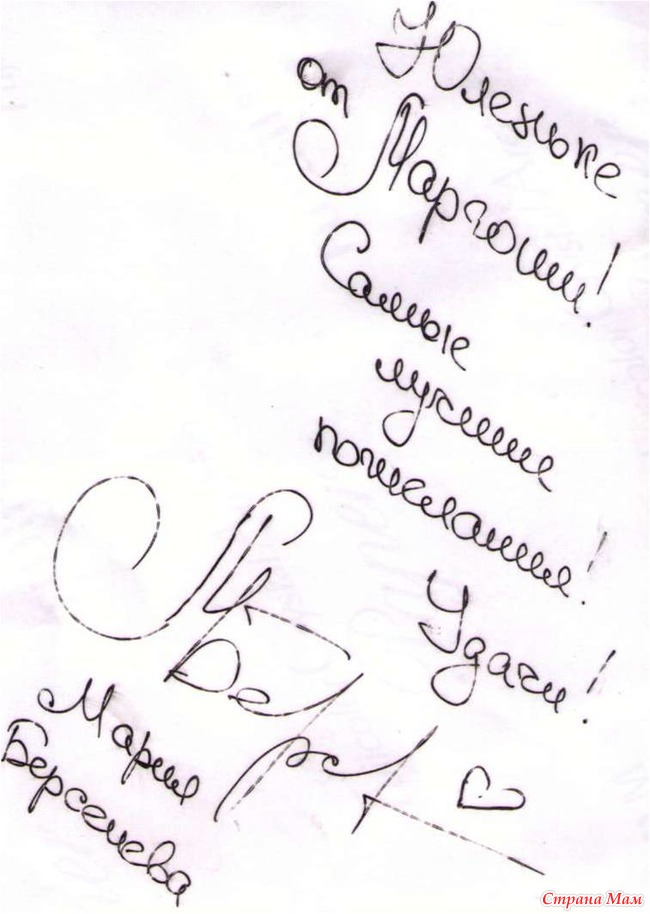 Юленьке
от
Маргоши!
Самые
лучшие
пожелания!
Удачи!
М Берс
Мария
Берсенева
Страна Мам